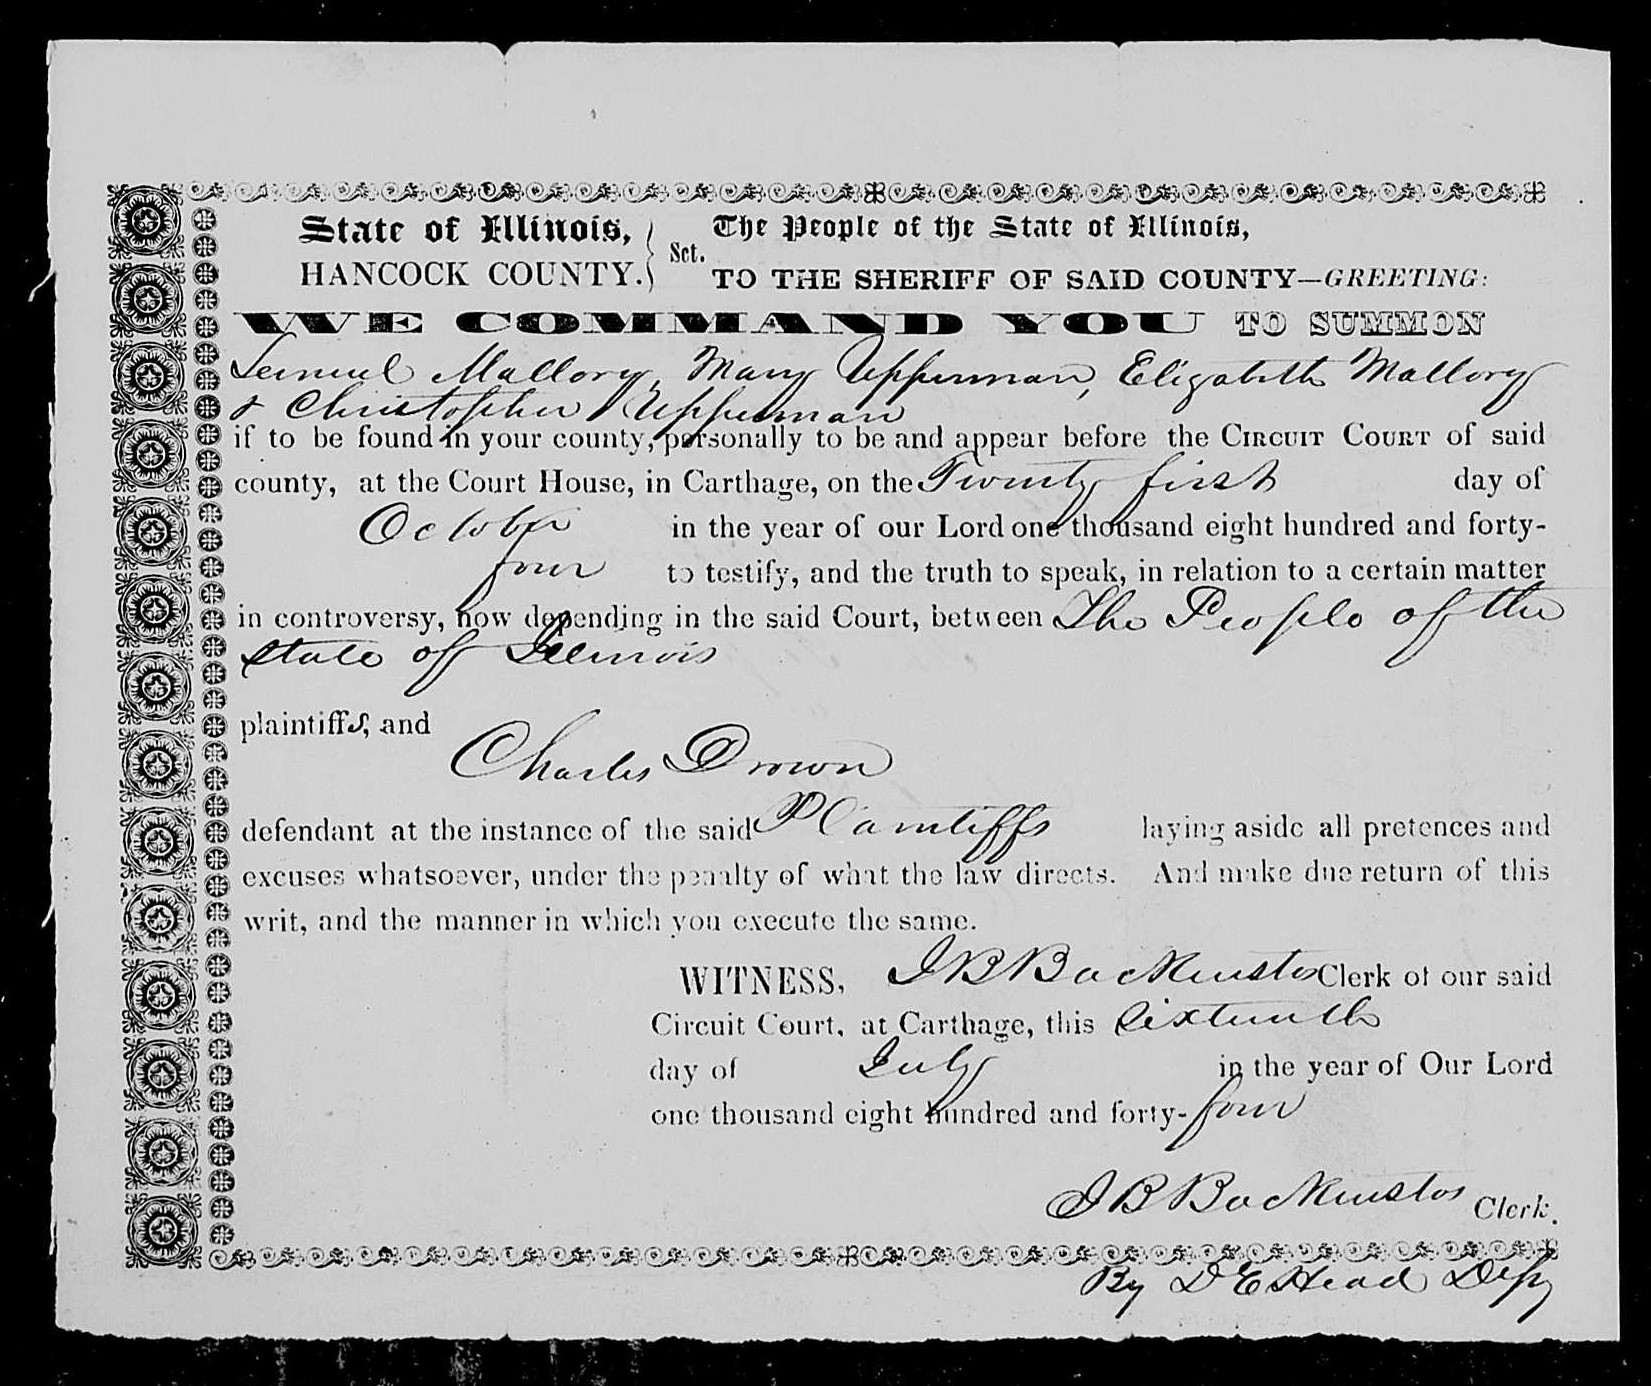 State of Illinois, } Sct. The People of the State of Illinois,
HANCOCK COUNTY. TO THE SHERIFF OF SAID COUNTY—GREETING:
WE COMMAND YOU TO SUMMON
Lemuel Mallory, Mary Upperman, Elizabeth Mallory
& Christopher Upperman
if to be found in your county, personally to be and appear before the CIRCUIT COURT of said
county, at the Court House, in Carthage, on the Twenty first day of
October in the year of our Lord one thousand eight hundred and forty-
four to testify, and the truth to speak, in relation to a certain matter
in controversy, now depending in the said Court, between The People of the
State of Illinois
plaintiffs, and
Charles Drown
defendant at the instance of the said Plaintiffs laying aside all pretences and
excuses whatsoever, under the penalty of what the law directs. And make due return of this
writ, and the manner in which you execute the same.
WITNESS, J B Backenstos Clerk of our said
Circuit Court, at Carthage, this Sixteenth
day of July in the year of Our Lord
one thousand eight hundred and forty-four
J B Backenstos Clerk.
By D E Head Depy